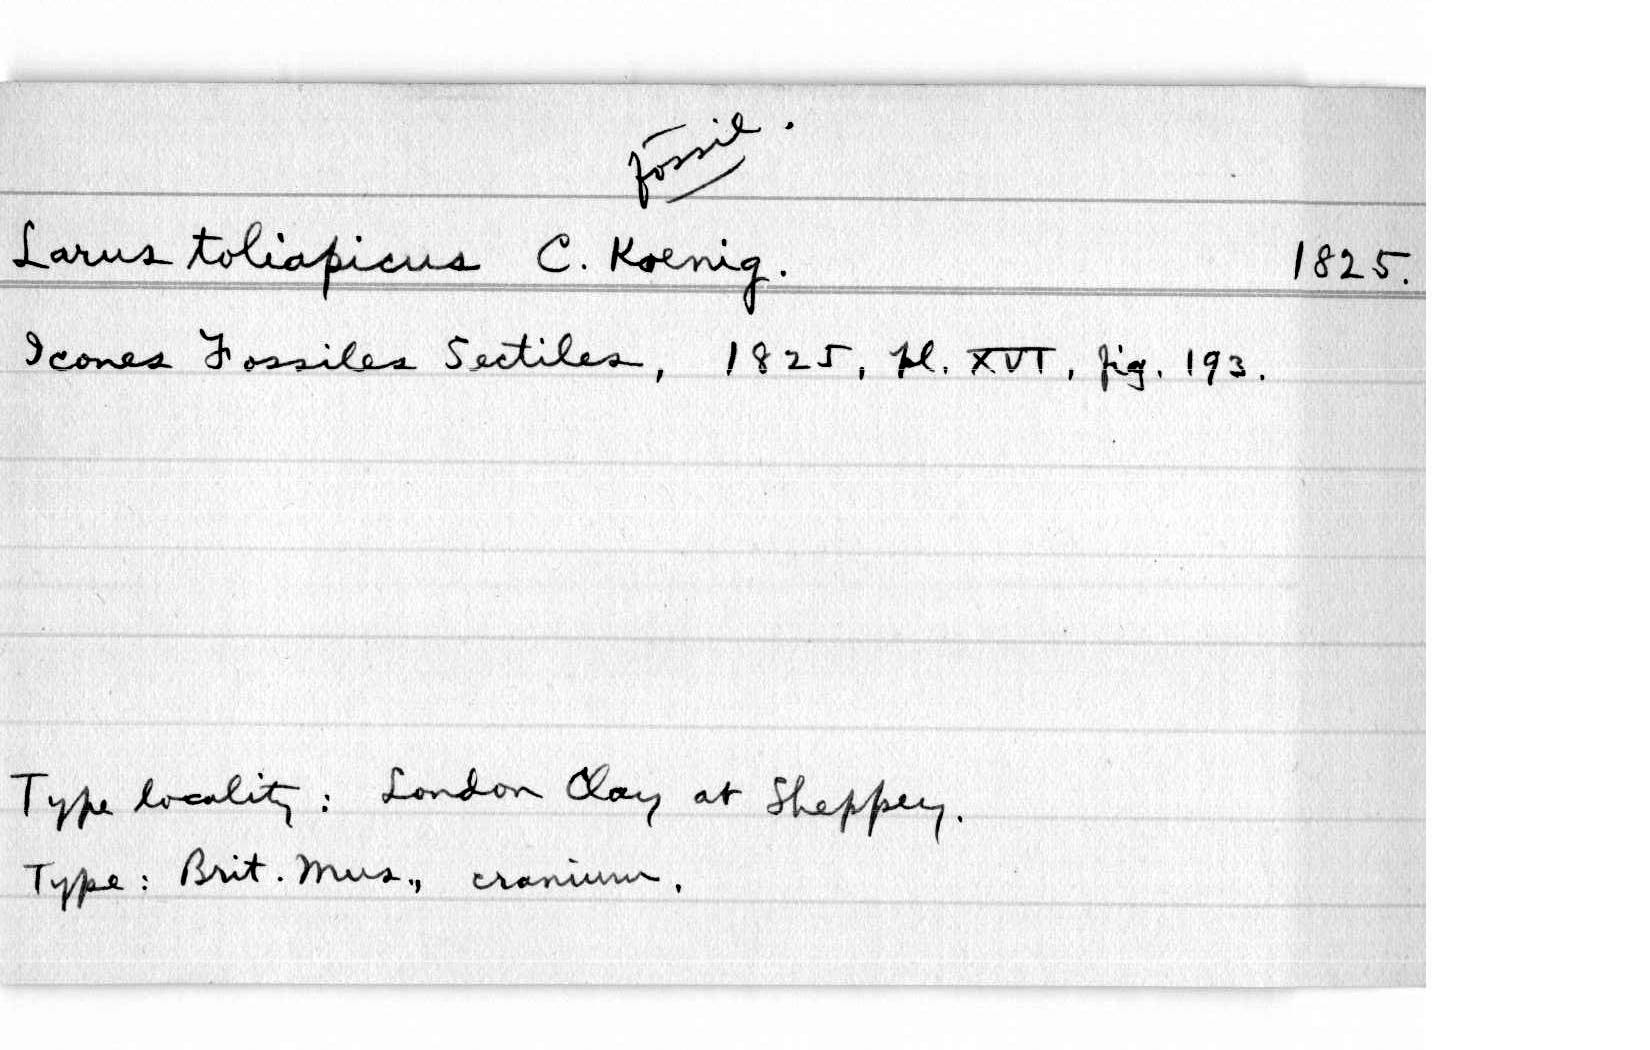 fossil.
Larus toliapicus C. Koenig. 1825.
Icones Fossiles Sectiles, 1825, pl. XVI, fig. 193.
Type locality: London Clay at Sheppey.
Type: Brit. Mus., cranium.